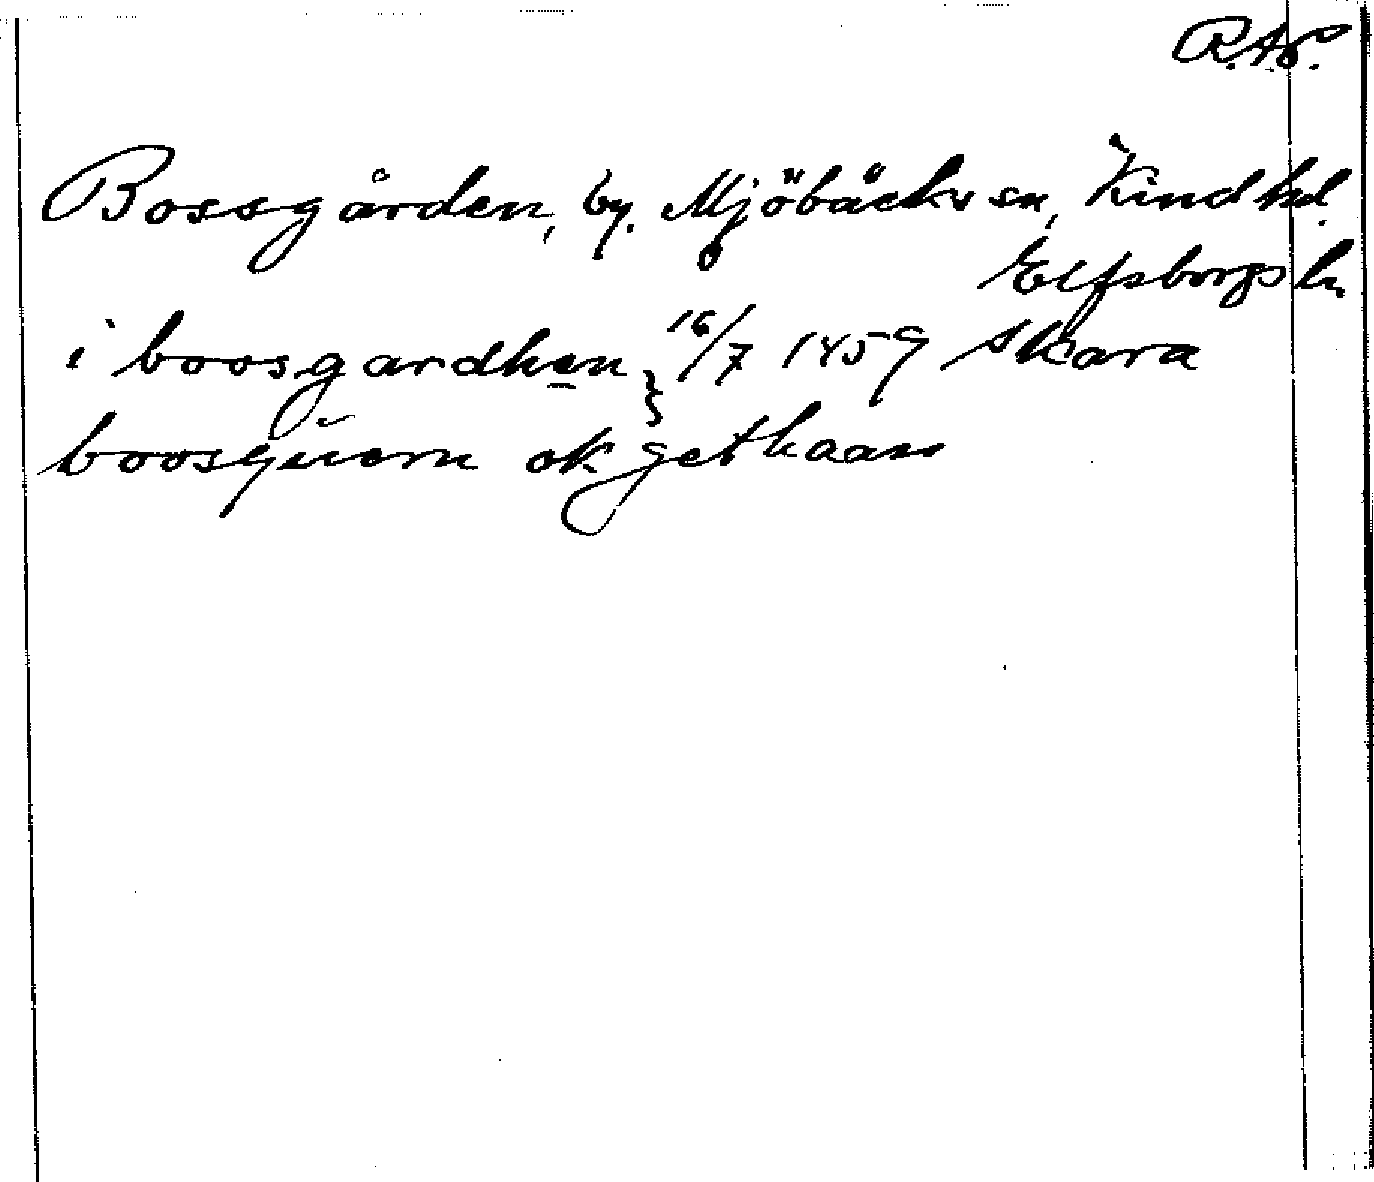 R.A.P.
Bossgården, by. Mjöbäcks sn, Kind hd.
Elfsborgs ln.
i boosgardhen } 16/7 1459 Skara
boosquern ok gethaas